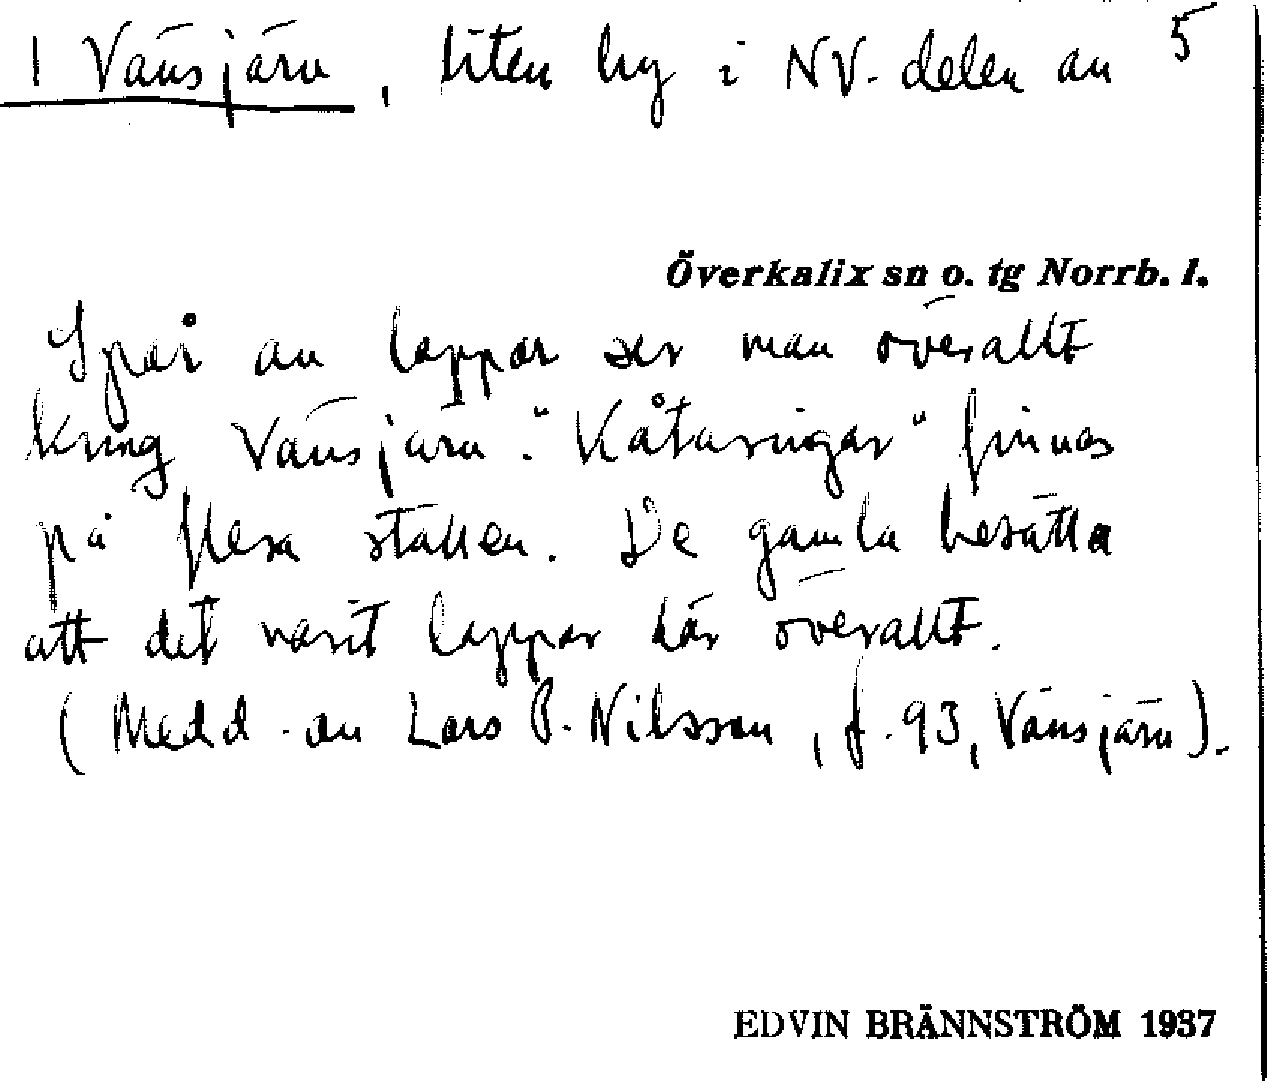 1 Vänsjärv, liten by i NV-delen av 5
Överkalix sn o. tg Norrb. l.
Spår av lappar ser man överallt
kring Vänsjärv. "Kåtaringar" finnas
på flera ställen. De gamla berätta
att det varit lappar här överallt.
(Medd. av Lars P. Nilsson, f. 93, Vänsjärv).
EDVIN BRÄNNSTRÖM 1937